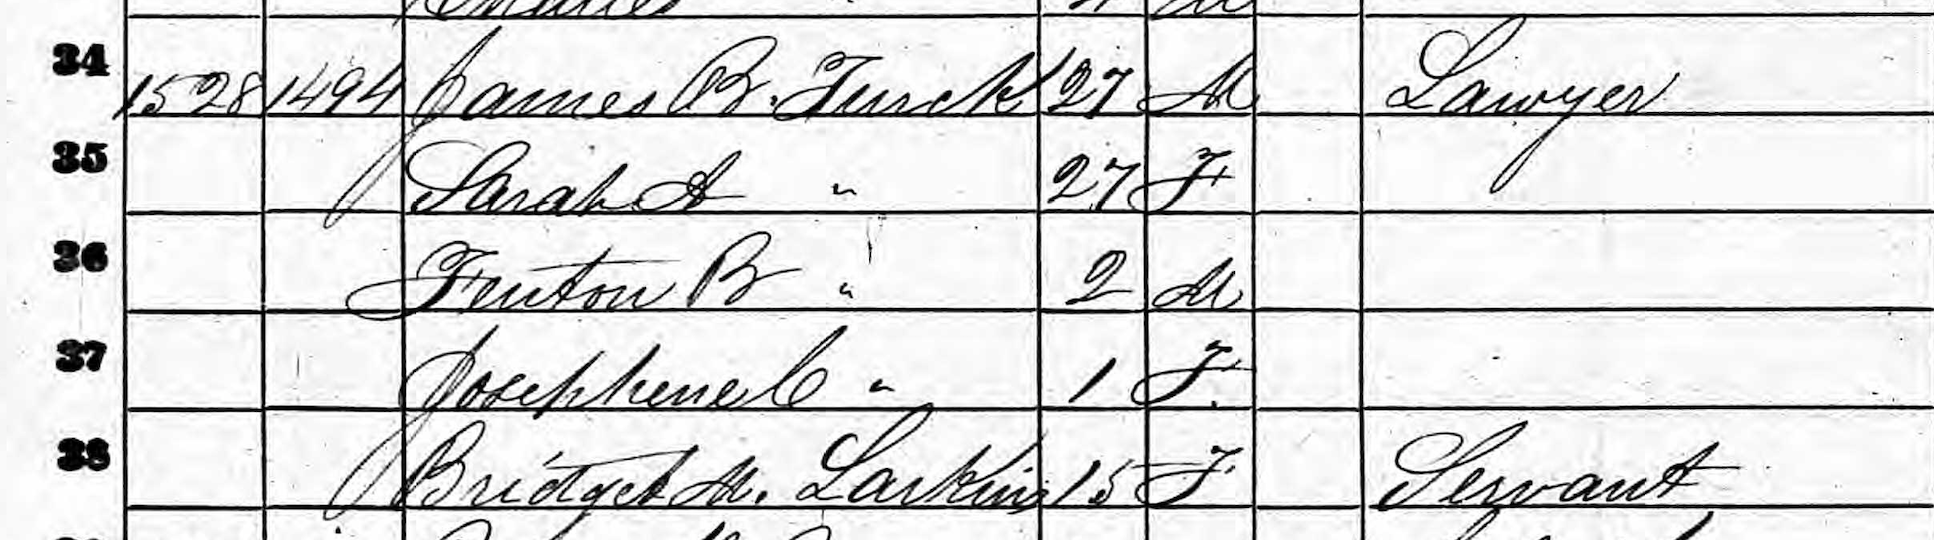 34 1528 1494 James B. Turck 27 M Lawyer
35 Sarah A " 27 F
36 Fenton B " 2 M
37 Josephene C " 1 F.
38 Bridget M. Larkins 15 F Servant